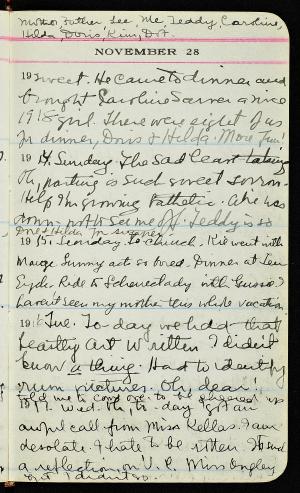 Mother, Father, Lee, Me, Teddy, Caroline,
Hilda, Doris, Kim, Dot.
NOVEMBER 28
19 sweet. He came to dinner and
brought Caroline a nice
1918 girl. There were eight of us
for dinner, Doris & Hilda. More fun!
19 14. Sunday. The sad leave taking
Oh, parting is such sweet sorrow.
Help I'm growing pathetic. A. he was
down to see me off. Teddy is so
Dot & Hilda for supper.
19 15. Sunday. To church. Kid went with
Marge Sunny act so bored. Dinner at Lee
Ride to Schenectady with
haven't seen my mother this whole vacation.
1916 Tue. To day we had that
beastly Art Written. I didn't
know a thing. Had to identify
pictures. Oh, dear!
told me to come over to be cheered up
1917. Wed. Oh, to-day got an
awful call from Miss Kellas. I am
desolate. I hate to be rotten. To
a reflection on V. P. Miss Ongley
but I didn't so.